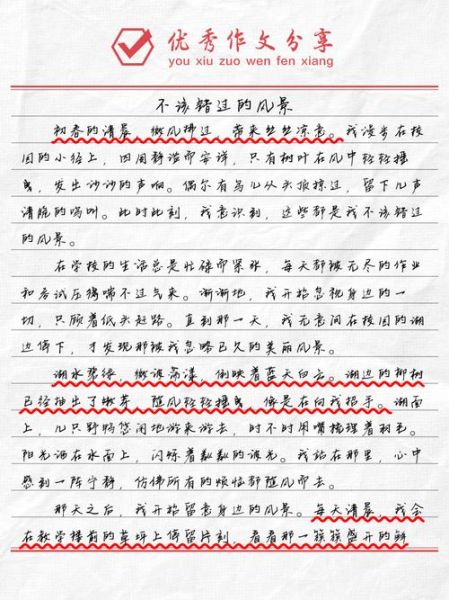 优秀作文分享
you xiu zuo wen fen xiang
不该错过的风景
初春的清晨，微风拂过，带来丝丝凉意。我漫步在校
园的小径上，四周静谧而安详，只有树叶在风中轻轻摇
曳，发出沙沙的声响。偶尔有鸟儿从头顶掠过，留下几声
清脆的鸣叫。此时此刻，我意识到，这些都是我不该错过
的风景。
在学校的生活总是忙碌而紧张，每天都被无尽的作业
和考试压得喘不过气来。渐渐地，我开始忽视身边的一
切，只顾着低头赶路。直到那一天，我无意间在校园的湖
边停下，才发现那被我忽略已久的美丽风景。
湖水碧绿，微波荡漾，倒映着蓝天白云。湖边的柳树
已经抽出了嫩芽，随风轻轻摇曳，像是在向我招手。湖面
上，几只野鸭悠闲地游来游去，时不时用嘴梳理着羽毛。
阳光洒在水面上，闪烁着粼粼的波光。我站在那里，心中
感到一阵宁静，仿佛所有的烦恼都随风而去。
那天之后，我开始留意身边的风景。每天清晨，我会
在教学楼前的草坪上停留片刻，看看那一簇簇盛开的鲜